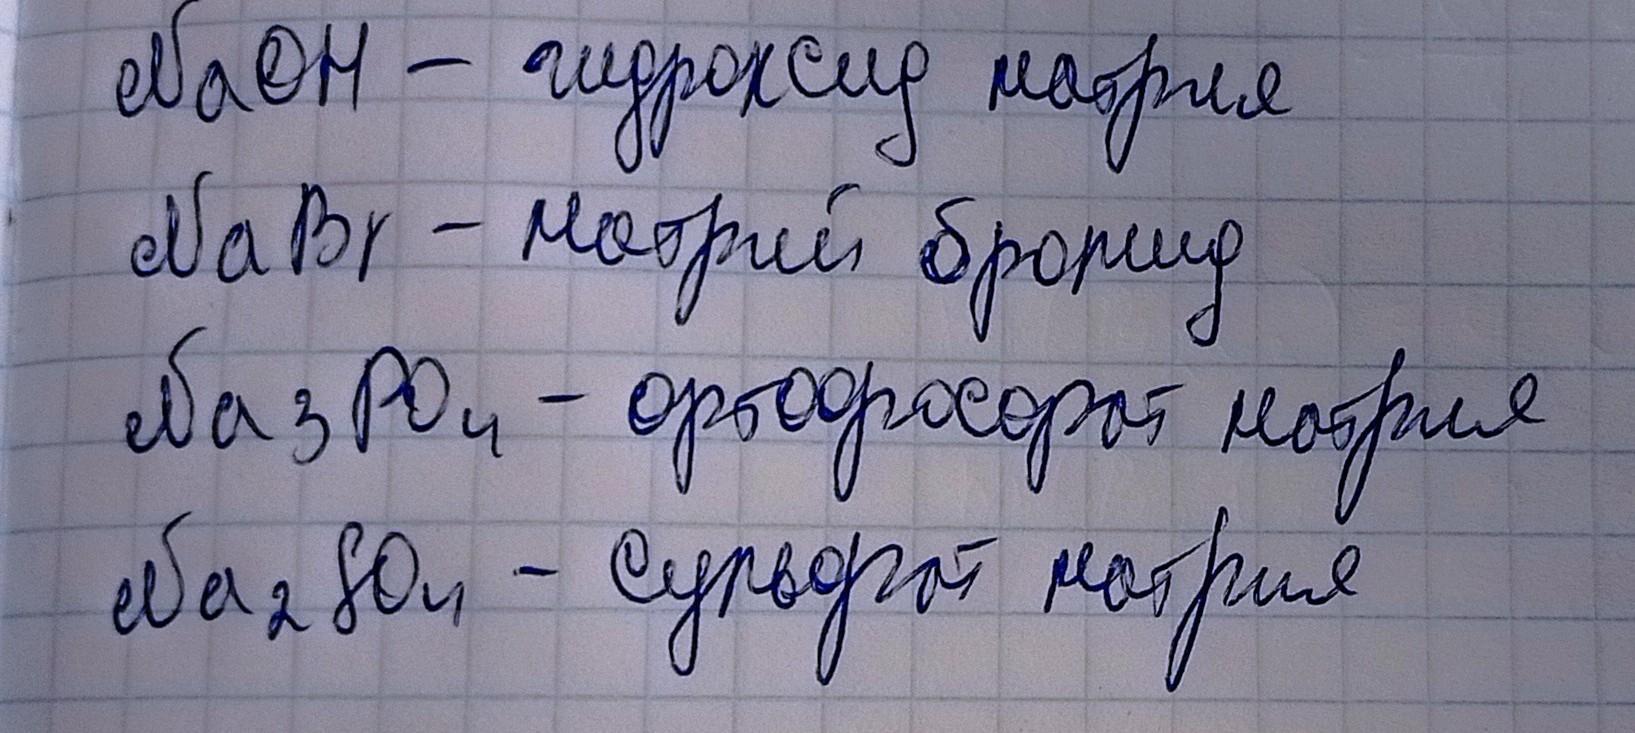 NaOH – гидроксид натрия
NaBr – натрий бромид
Na₃PO₄ – ортофосфат натрия
Na₂SO₄ – Сульфат натрия